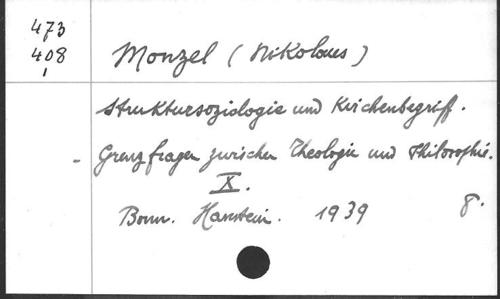 473
408
1
Monzel (Nikolaus)
Struktursoziologie und Kirchenbegriff.
- Grenzfragen zwischen Theologie und Philosophie.
X.
Bonn. Hanstein. 1939 8.